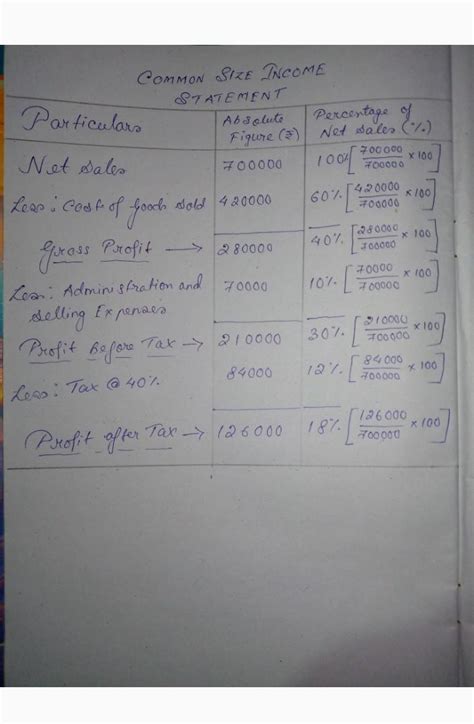 COMMON SIZE INCOME
STATEMENT
Particulars
Absolute
Figure (₹)
Percentage of
Net Sales (%)
Net Sales 700000 100% [700000/700000 × 100]
Less: Cost of Goods Sold 420000 60% [420000/700000 × 100]
Gross Profit → 280000 40% [280000/700000 × 100]
Less: Administration and 70000 10% [70000/700000 × 100]
Selling Expenses
Profit Before Tax → 210000 30% [210000/700000 × 100]
Less: Tax @ 40% 84000 12% [84000/700000 × 100]
Profit after Tax → 126000 18% [126000/700000 × 100]